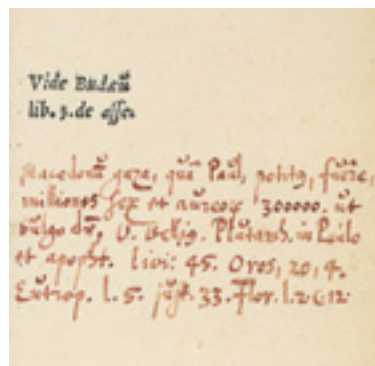 Vide Budeū
lib. 3. de asse.
Macedonū gaza, quā Paul, potitꝰ, fuēre,
milliones sex et aureorū 300000. ut
vulgo dr̄, V. Plutarch. in Paulo
et apopht. Livi: 45. Oros, 20, 4.
Eutrop. l. 5. just. 33. Flor. l. 2. c 12.